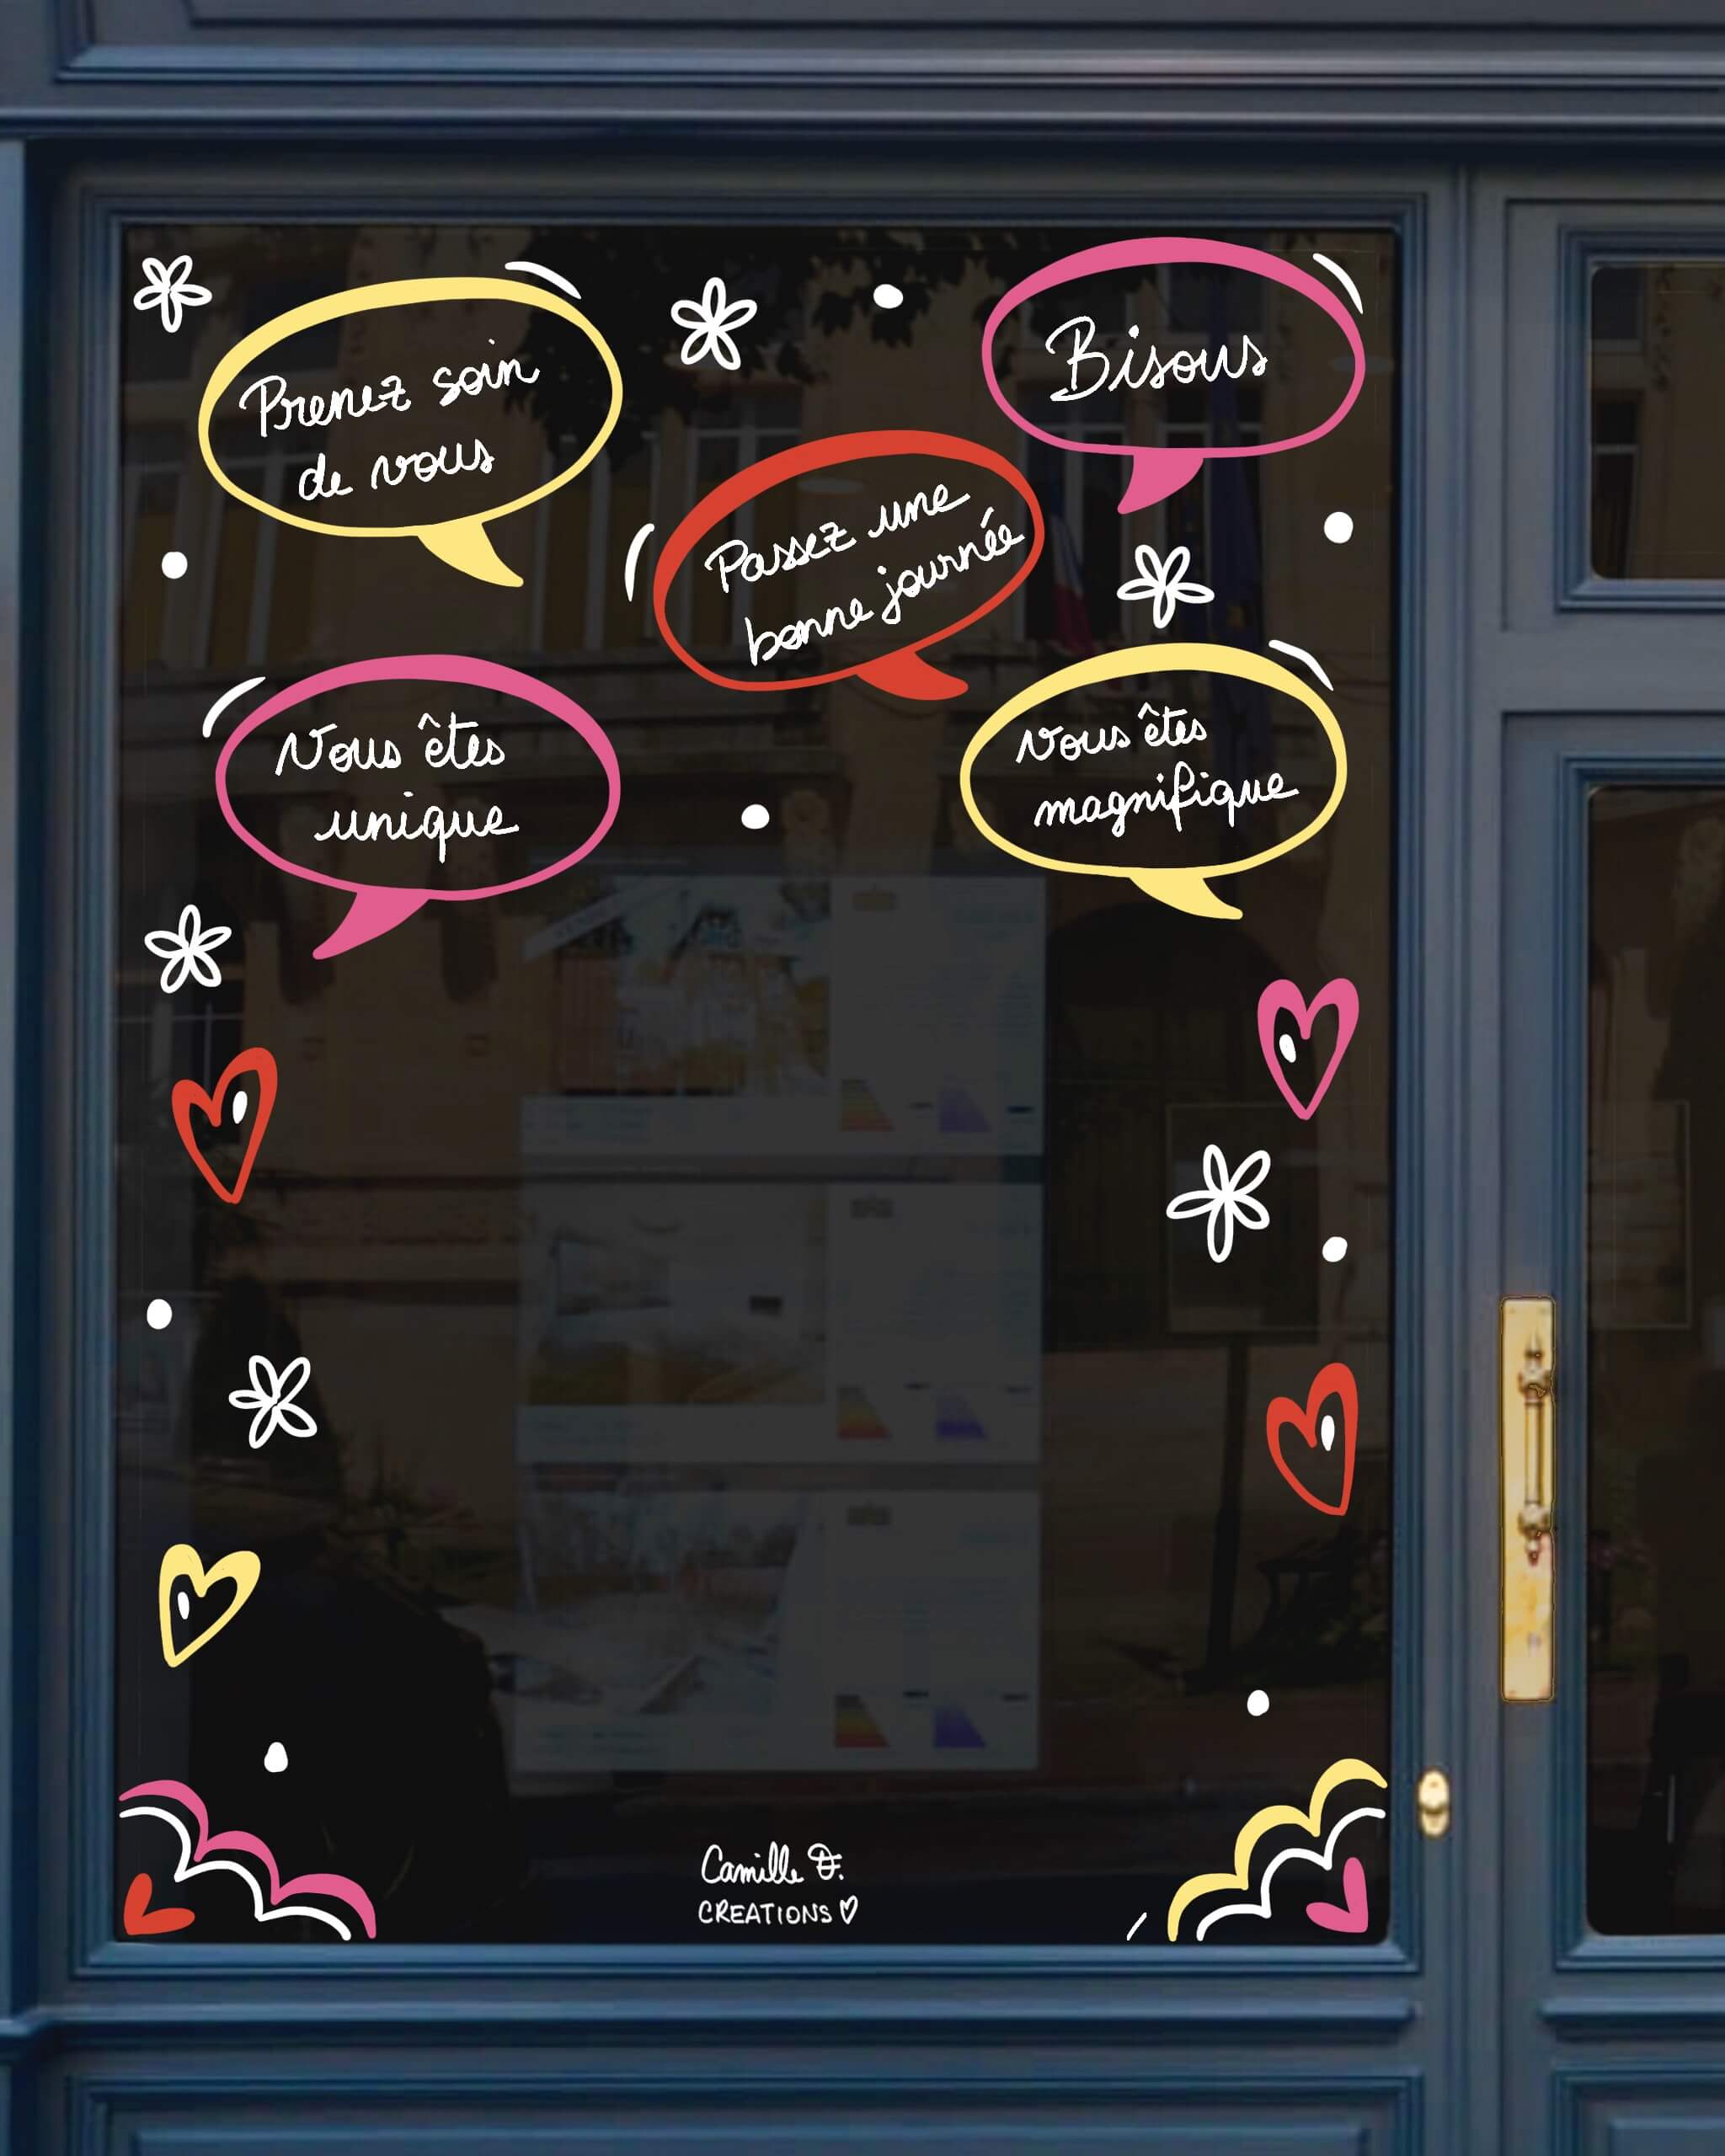 Prenez soin
de vous
Bisous
Passez une
bonne journée
Vous êtes
unique
Vous êtes
magnifique
Camille D.
CREATIONS